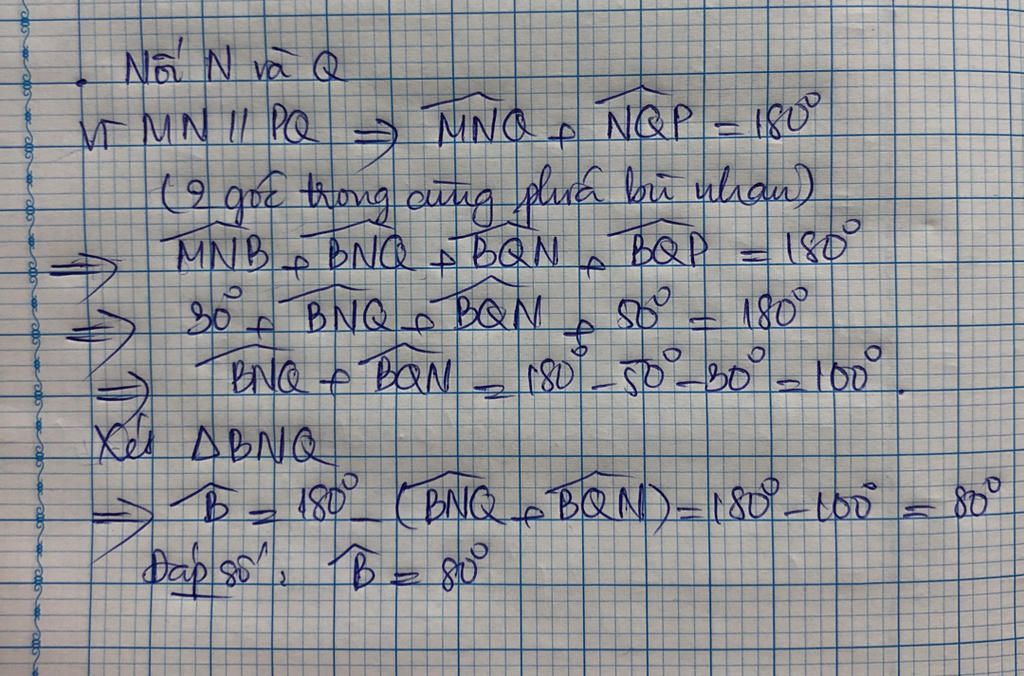 . Nối N và Q
Vì MN // PQ ⇒ \widehat{MNQ} + \widehat{NQP} = 180°
(2 góc trong cùng phía bù nhau)
⇒ \widehat{MNB} + \widehat{BNQ} + \widehat{BQN} + \widehat{BQP} = 180°
⇒ 30° + \widehat{BNQ} + \widehat{BQN} + 50° = 180°
⇒ \widehat{BNQ} + \widehat{BQN} = 180° - 50° - 30° = 100°.
Xét ΔBNQ
⇒ \widehat{B} = 180° - (\widehat{BNQ} + \widehat{BQN}) = 180° - 100° = 80°
Đáp số: \widehat{B} = 80°